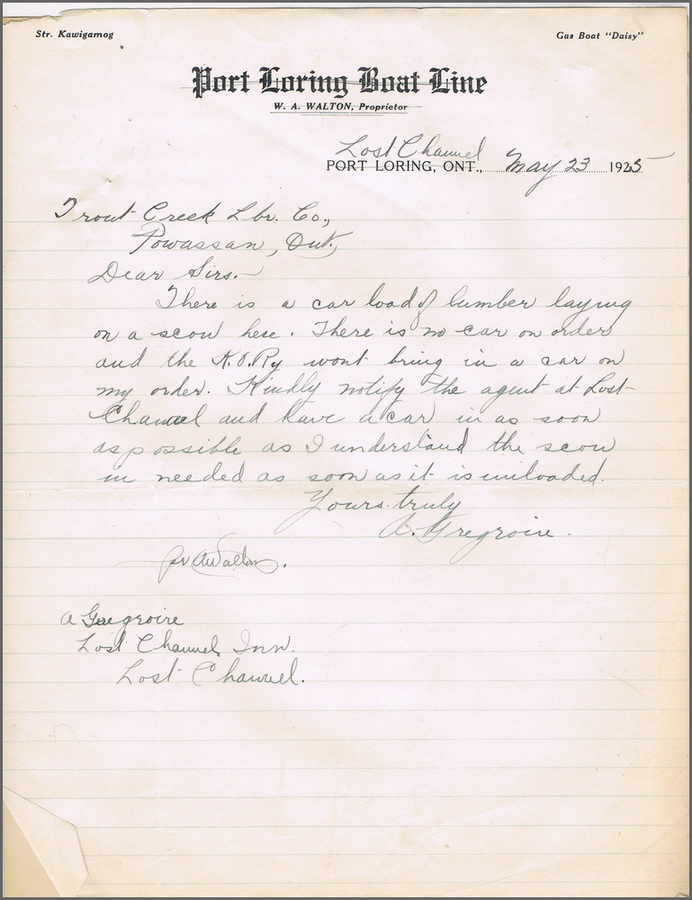 Str. Kawigamog
Gas Boat "Daisy"
Port Loring Boat Line
W. A. WALTON, Proprietor
Lost Channel
PORT LORING, ONT., May 23 1925
Trout Creek Lbr. Co.,
Powassan, Ont.,
Dear Sirs.—
There is a car load of lumber laying
on a scow here. There is no car on order
and the K.O.Ry wont bring in a car on
my order. Kindly notify the agent at Lost
Channel and have a car in as soon
as possible as I understand the scow
is needed as soon as it is unloaded.
Yours truly
A. Gregroire.
per AWalton.
A Gregroire
Lost Channel Inn.
Lost Channel.